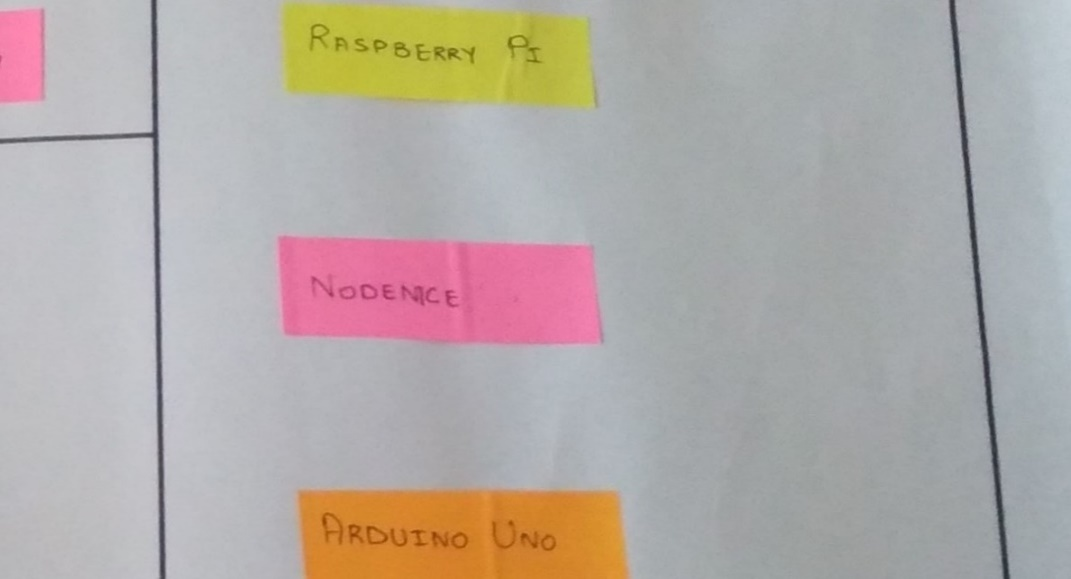 RASPBERRY PI
NODEMCE
ARDUINO UNO